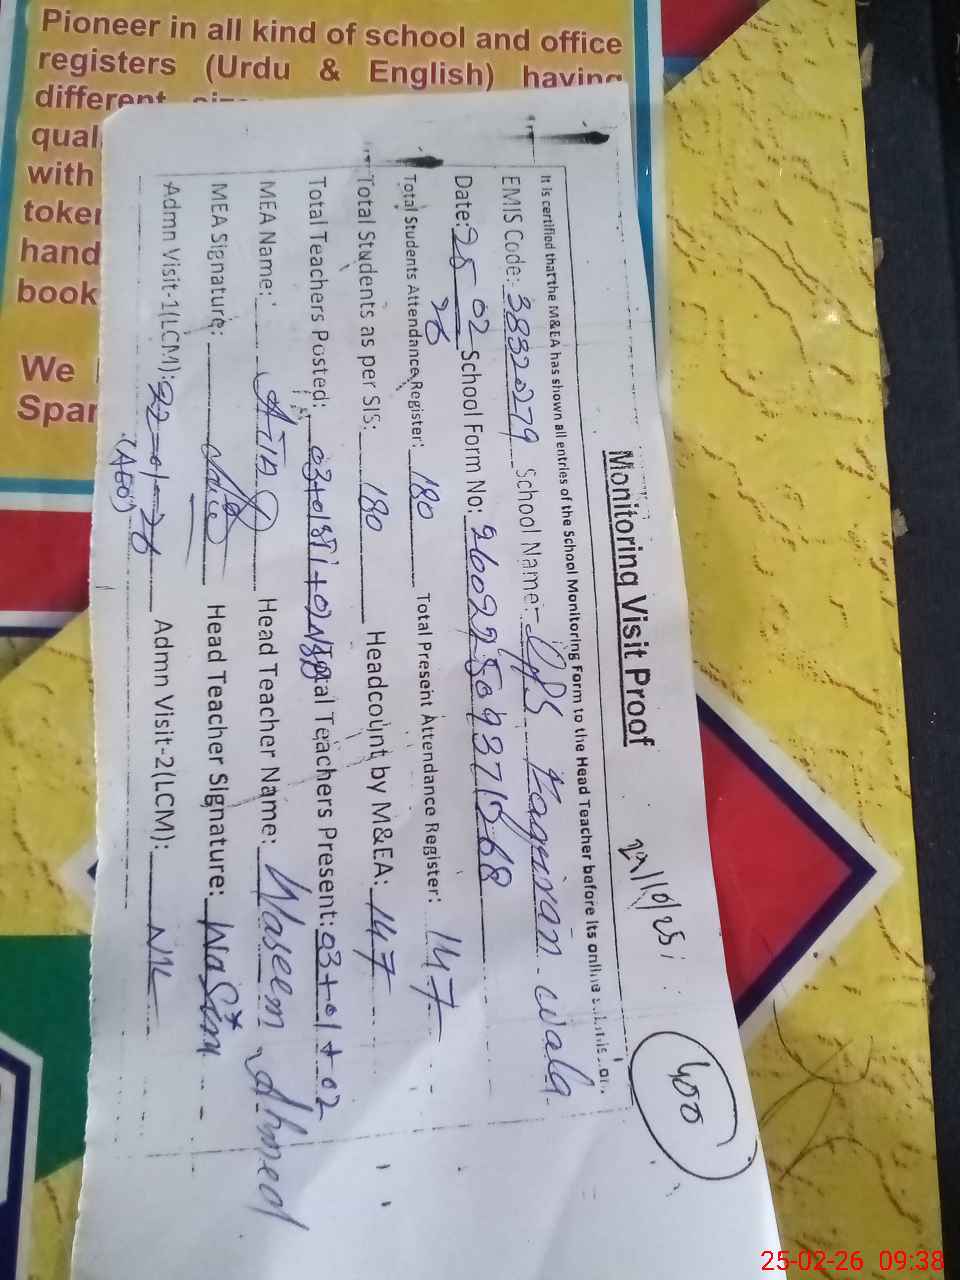 Pioneer in all kind of school and office
registers (Urdu & English) having
different
qual
with
token
hand
book
We
Spar
Monitoring Visit Proof
400
It is certified that the M&EA has shown all entries of the School Monitoring Form to the Head Teacher before its online
EMIS Code:- 38320279 School Name:- GPS wala
Date: 25 02 26 School Form No: 26022509371568
Total Students Attendance Register: 180 Total Present Attendance Register: 147
Total Students as per SIS: 180 Headcount by M&EA: 147
Total Teachers Posted: 03+01 STI+02 NSB Total Teachers Present: 03+01+02
MEA Name: Head Teacher Name: Waseem Ahmed
MEA Signature: Head Teacher Signature: Wasim
Admn Visit-1(LCM): 22-01-26 Admn Visit-2(LCM): NIL
(AEO)
25-02-26 09:38